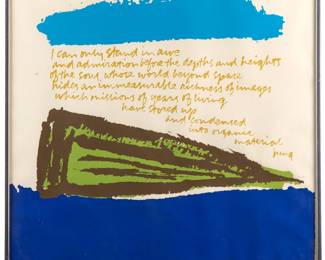 I can only stand in awe
and admiration before the depths and heights
of the soul whose world beyond space
hides an immeasurable richness of images
which millions of years of living
have stored up
and condensed
into organic
material